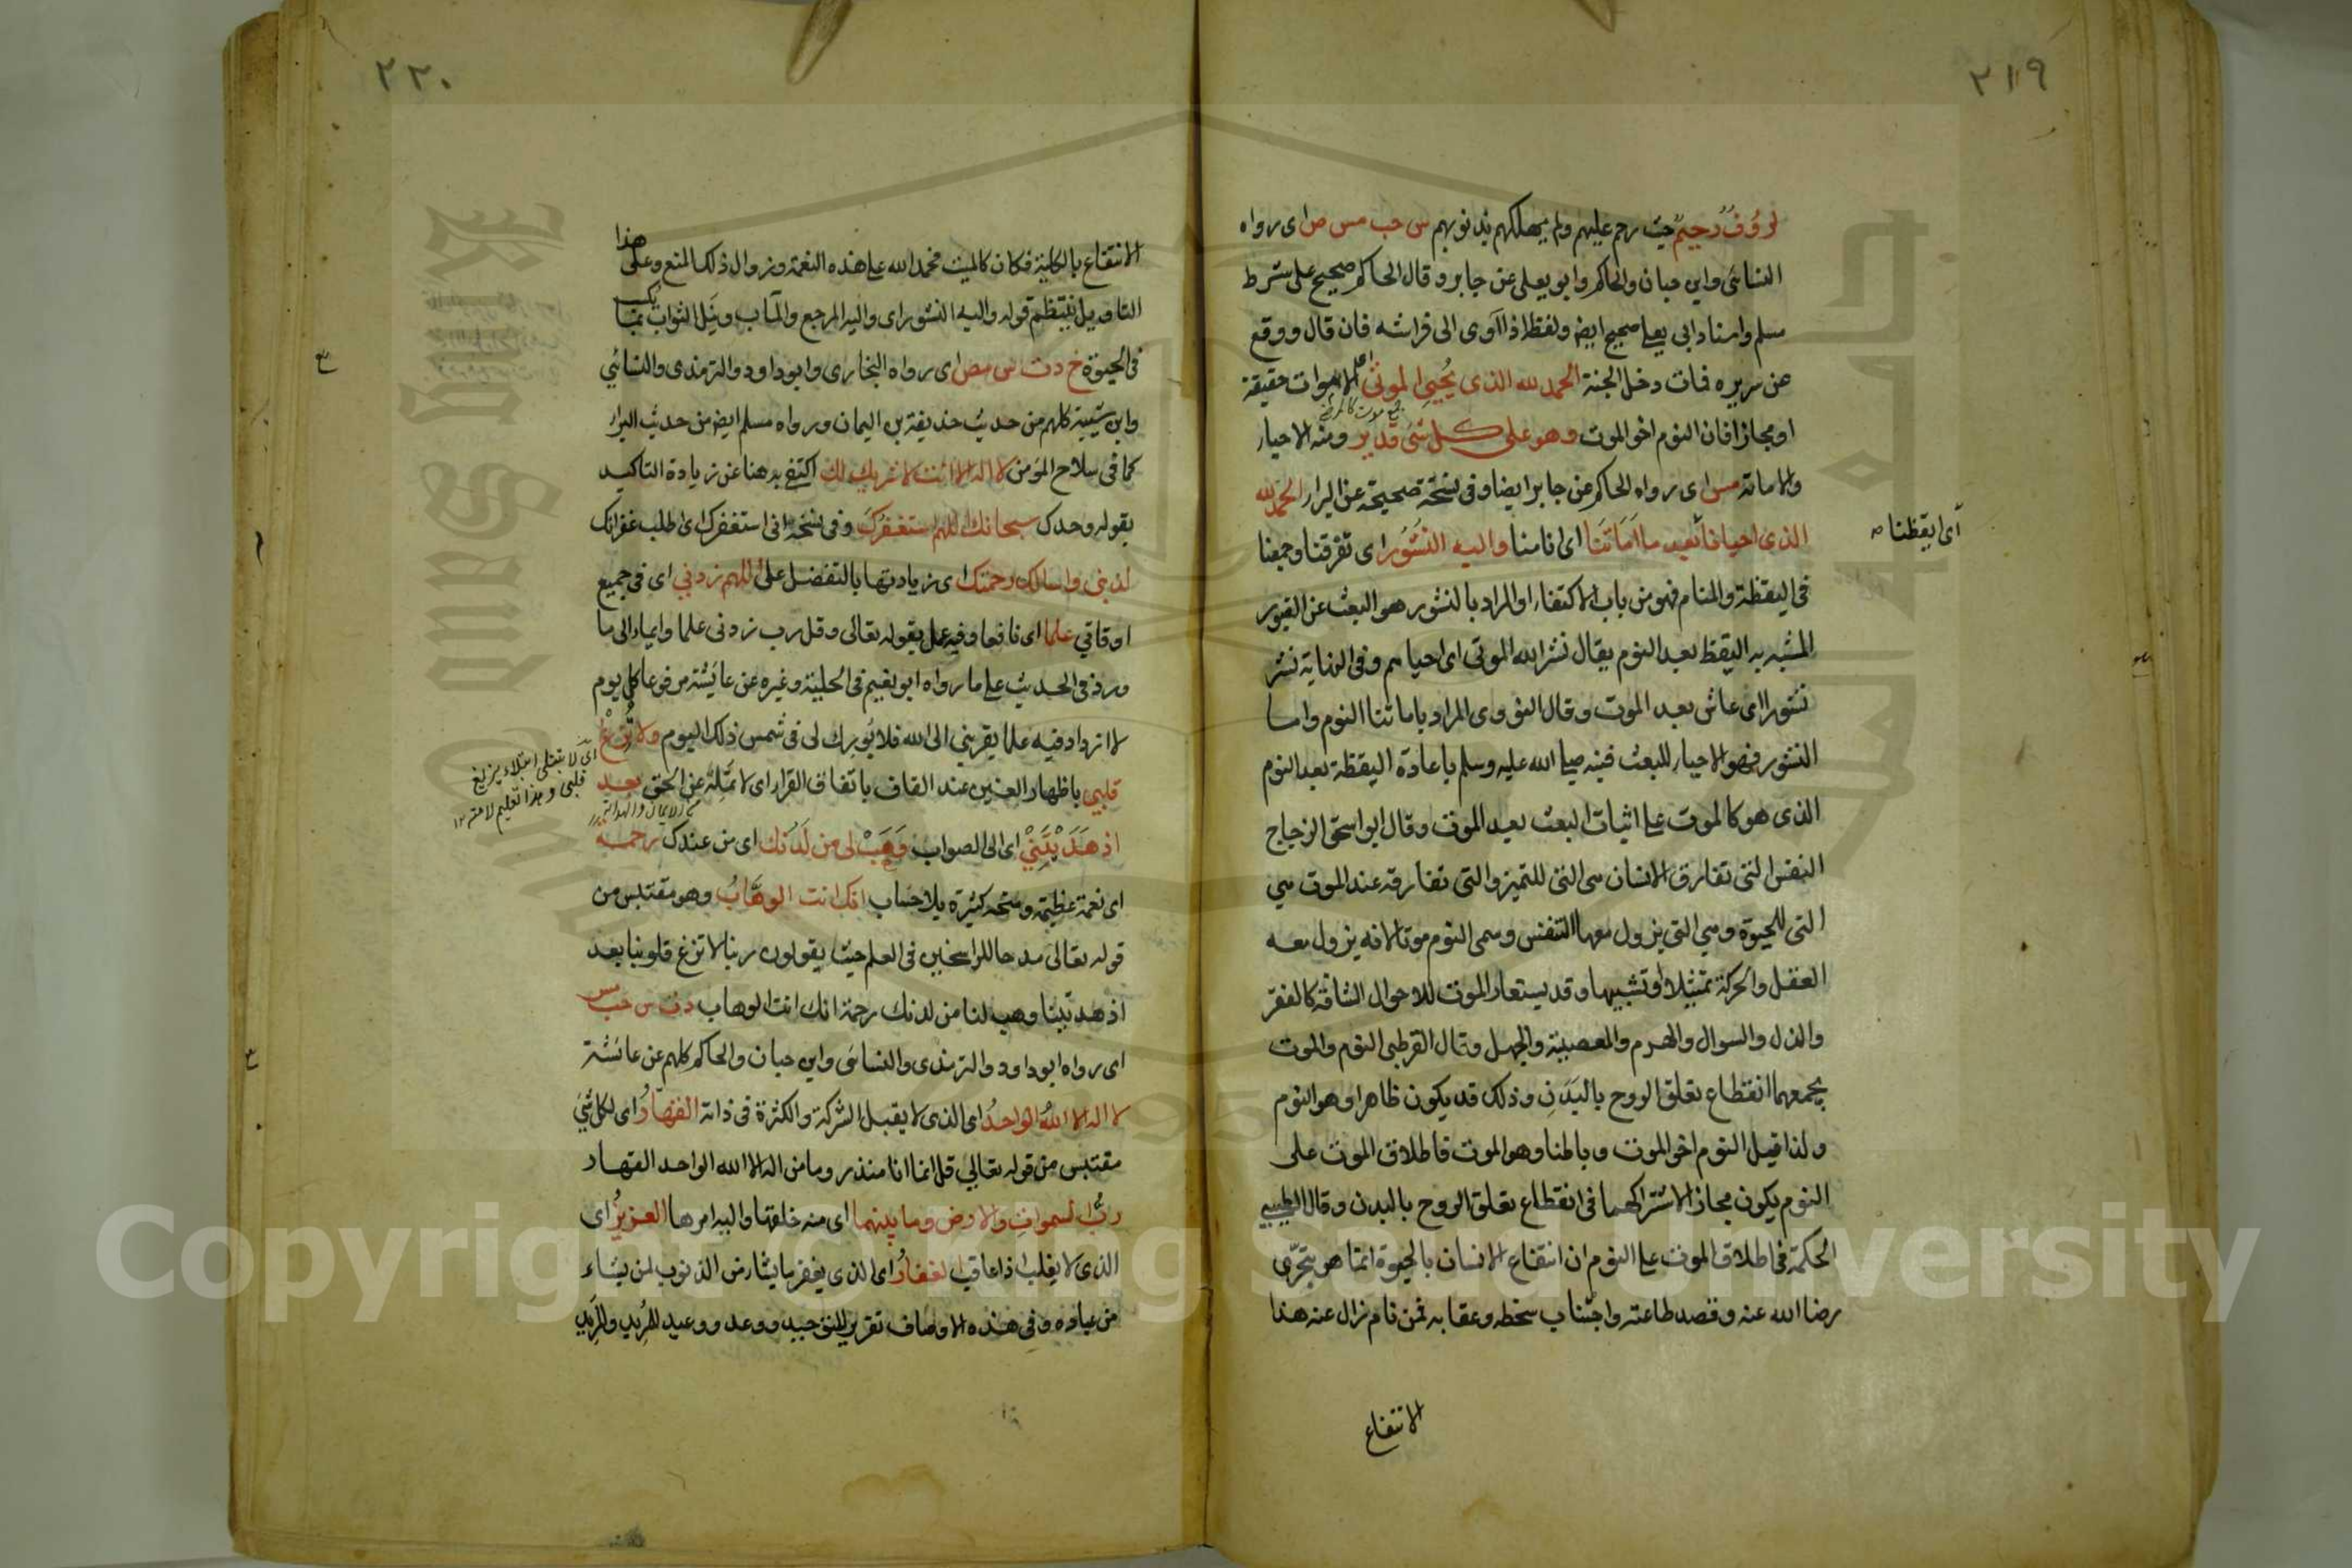 ٢١٩
لرؤف رحيم حيث رحم عليهم ولم يهلكهم بذنوبهم س حب مس ص اى رواه
النسائى وابن حبان والحاكم وابو يعلى عن جابر وقال الحاكم صحيح على شرط
مسلم واسناد ابى يعلى صحيح ايضا ولفظه اذا آوى الى فراشه فان قال ووقع
عن سريره فمات دخل الجنة الحمد لله الذى يُحيى الموتى اى الاموات حقيقة
جمع موت كالمرضى
او مجازا فان النوم اخو الموت وهو على كل شئ قدير ومنه الاحياء
والاماتة مس اى رواه الحاكم عن جابر ايضا وفى نسخة صحيحة عن البراء الحمد لله
الذى احيانا بعد ما اَمَاتَنَا اى انامنا واليه النُشُور اى تفرقنا وجمعنا
اى ايقظنا
فى اليقظة والمنام فهو من باب الاكتفاء او المراد بالنشور هو البعث عن القبور
المشبه به اليقظ بعد النوم يقال نشر الله الموتى اى احياهم وفى النهاية نشر
نشورا اى عاش بعد الموت وقال النووى المراد باماتنا النوم واما
النشور فهو الاحياء للبعث فنبه صلى الله عليه وسلم باعادة اليقظة بعد النوم
الذى هو كالموت على اثبات البعث بعد الموت وقال ابو اسحق الزجاج
النفس التى تفارق الانسان هى التى للتميز والتى تفارقه عند الموت هى
التى للحيوة وهى التى يزول معها التنفس وسمى النوم موتا لانه يزول معه
العقل والحركة تمثيلا او تشبيها وقد يستعار الموت للاحوال الشاقة كالفقر
والذل والسوال والهرم والمعصية والجهل وقال القرطبى النوم والموت
يجمعهما انقطاع تعلق الروح بالبَدَنِ وذلك قد يكون ظاهرا وهو النوم
ولذا قيل النوم اخو الموت وباطنا وهو الموت فاطلاق الموت على
النوم يكون مجازا لاشتراكهما فى انقطاع تعلق الروح بالبدن وقال الطيبى
الحكمة فى اطلاق الموت على النوم ان انتفاع الانسان بالحيوة انما هو بتحرّى
رضا الله عنه وقصد طاعته واجتناب سخطه وعقابه فمن نام زال عنه هذا
الانتفاع
٢٢٠
الانتفاع بالكلية فكان كالميت فحمد الله على هذه النعمة وزوال ذلك المنع وعلى هذا
التاويل ينتظم قوله واليه النشور اى واليه المرجع والمآب ونيل الثواب بما يكسب
فى الحيوة خ د ت س مص اى رواه البخارى وابو داود والترمذى والنسائى
وابن شيبة كلهم من حديث حذيفة بن اليمان ورواه مسلم ايضا من حديث البراء
كما فى سلاح المؤمن لا اله الا انت لا شريك لك اكتفى به هنا عن زيادة التاكيد
بقوله وحدك سبحانك اللهم استغفرك وفى نسخة انى استغفرك اى اطلب غفرانك
لذنبى واسالك رحمتك اى زيادتها بالتفضل علىّ اللهم زدنى اى فى جميع
اوقاتى علما اى نافعا وفيه عمل بقوله تعالى وقل رب زدنى علما وايماء الى ما
ورد فى الحديث على ما رواه ابو نعيم فى الحلية وغيره عن عايشة مرفوعا كل يوم
لا ازداد فيه علما يقربنى الى الله فلا بورك لى فى شمس ذلك اليوم ولا تُزِغْ
اى لا تبتلى ابتلاء يزيغ
قلبى وهذا تعليم لامته ١٢
قلبى باظهار الغين عند القاف باتفاق القراء اى لا تمله عن الحق بعد
اذ هَدَيْتَنِىْ اى الى الصواب وَهَبْ لى من لَدُنْك اى من عندك رحمة
اى نعمة عظيمة ومنحة كثيرة بلا حساب انك انت الوهَّابُ وهو مقتبس من
قوله تعالى مدحا للراسخين فى العلم حيث يقولون ربنا لا تزغ قلوبنا بعد
اذ هديتنا وهب لنا من لدنك رحمة انك انت الوهاب د ت س حب مس
اى رواه ابو داود والترمذى والنسائى وابن حبان والحاكم كلهم عن عائشة
لا اله الا اللهُ الواحدُ اى الذى لا يقبل الشركة والكثرة فى ذاته القهارُ اى لكل شئ
مقتبس من قوله تعالى قل انما انا منذر وما من اله الا الله الواحد القهار
ربُّ السموات والارض وما بينهما اى منه خلقتها واليه امرها العزيزُ اى
الذى لا يغلب اذا عاقب الغفارُ اى الذى يغفر ما يشاء من الذنوب لمن يشاء
من عباده وفى هذه الاوصاف تقرير للتوحيد ووعد ووعيد للمُريد والمَريد
Copyright © King Saud University